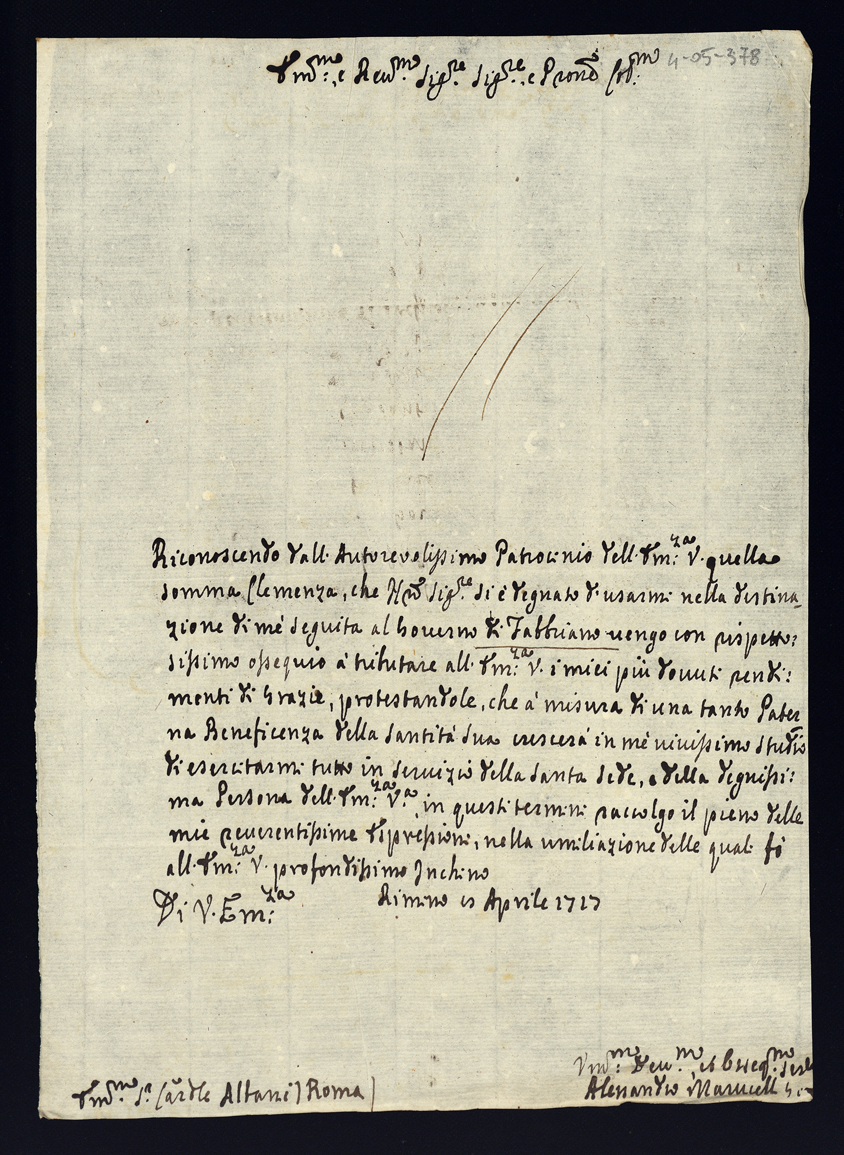 Em.mo e Rev.mo Sig.re Sig.re e Pron̄e Col.mo 4-05-378
Riconoscendo dall. Autorevolissimo Patrocinio dell. Em.za V. quella
somma Clemenza, che Nr̄o Sig.re si è degnato di usarmi nella destina-
zione di mè seguita al Governo di Fabbriano vengo con rispetto:
sissimo ossequio à tributare all. Em.za V. i miei più dovuti rendi:
menti di Grazie, protestandole, che à misura di una tanto Pater
na Beneficenza della Santità Sua crescerà in mè vivissimo studio
di esercitarmi tutto in servizio della Santa Sede, e della degnissi:
ma Persona dell. Em.za V.a, in questi termini raccolgo il pieno delle
mie reverentissime Espressioni, nella umiliazione delle quali fò
all. Em.za V. profondissimo Inchino
Di V. Em.za Rimino 15 Aprile 1717
Vm.mo Dev.mo et Osseq.mo
Em.mo S.r Cardle Albani) Roma) Alessandro